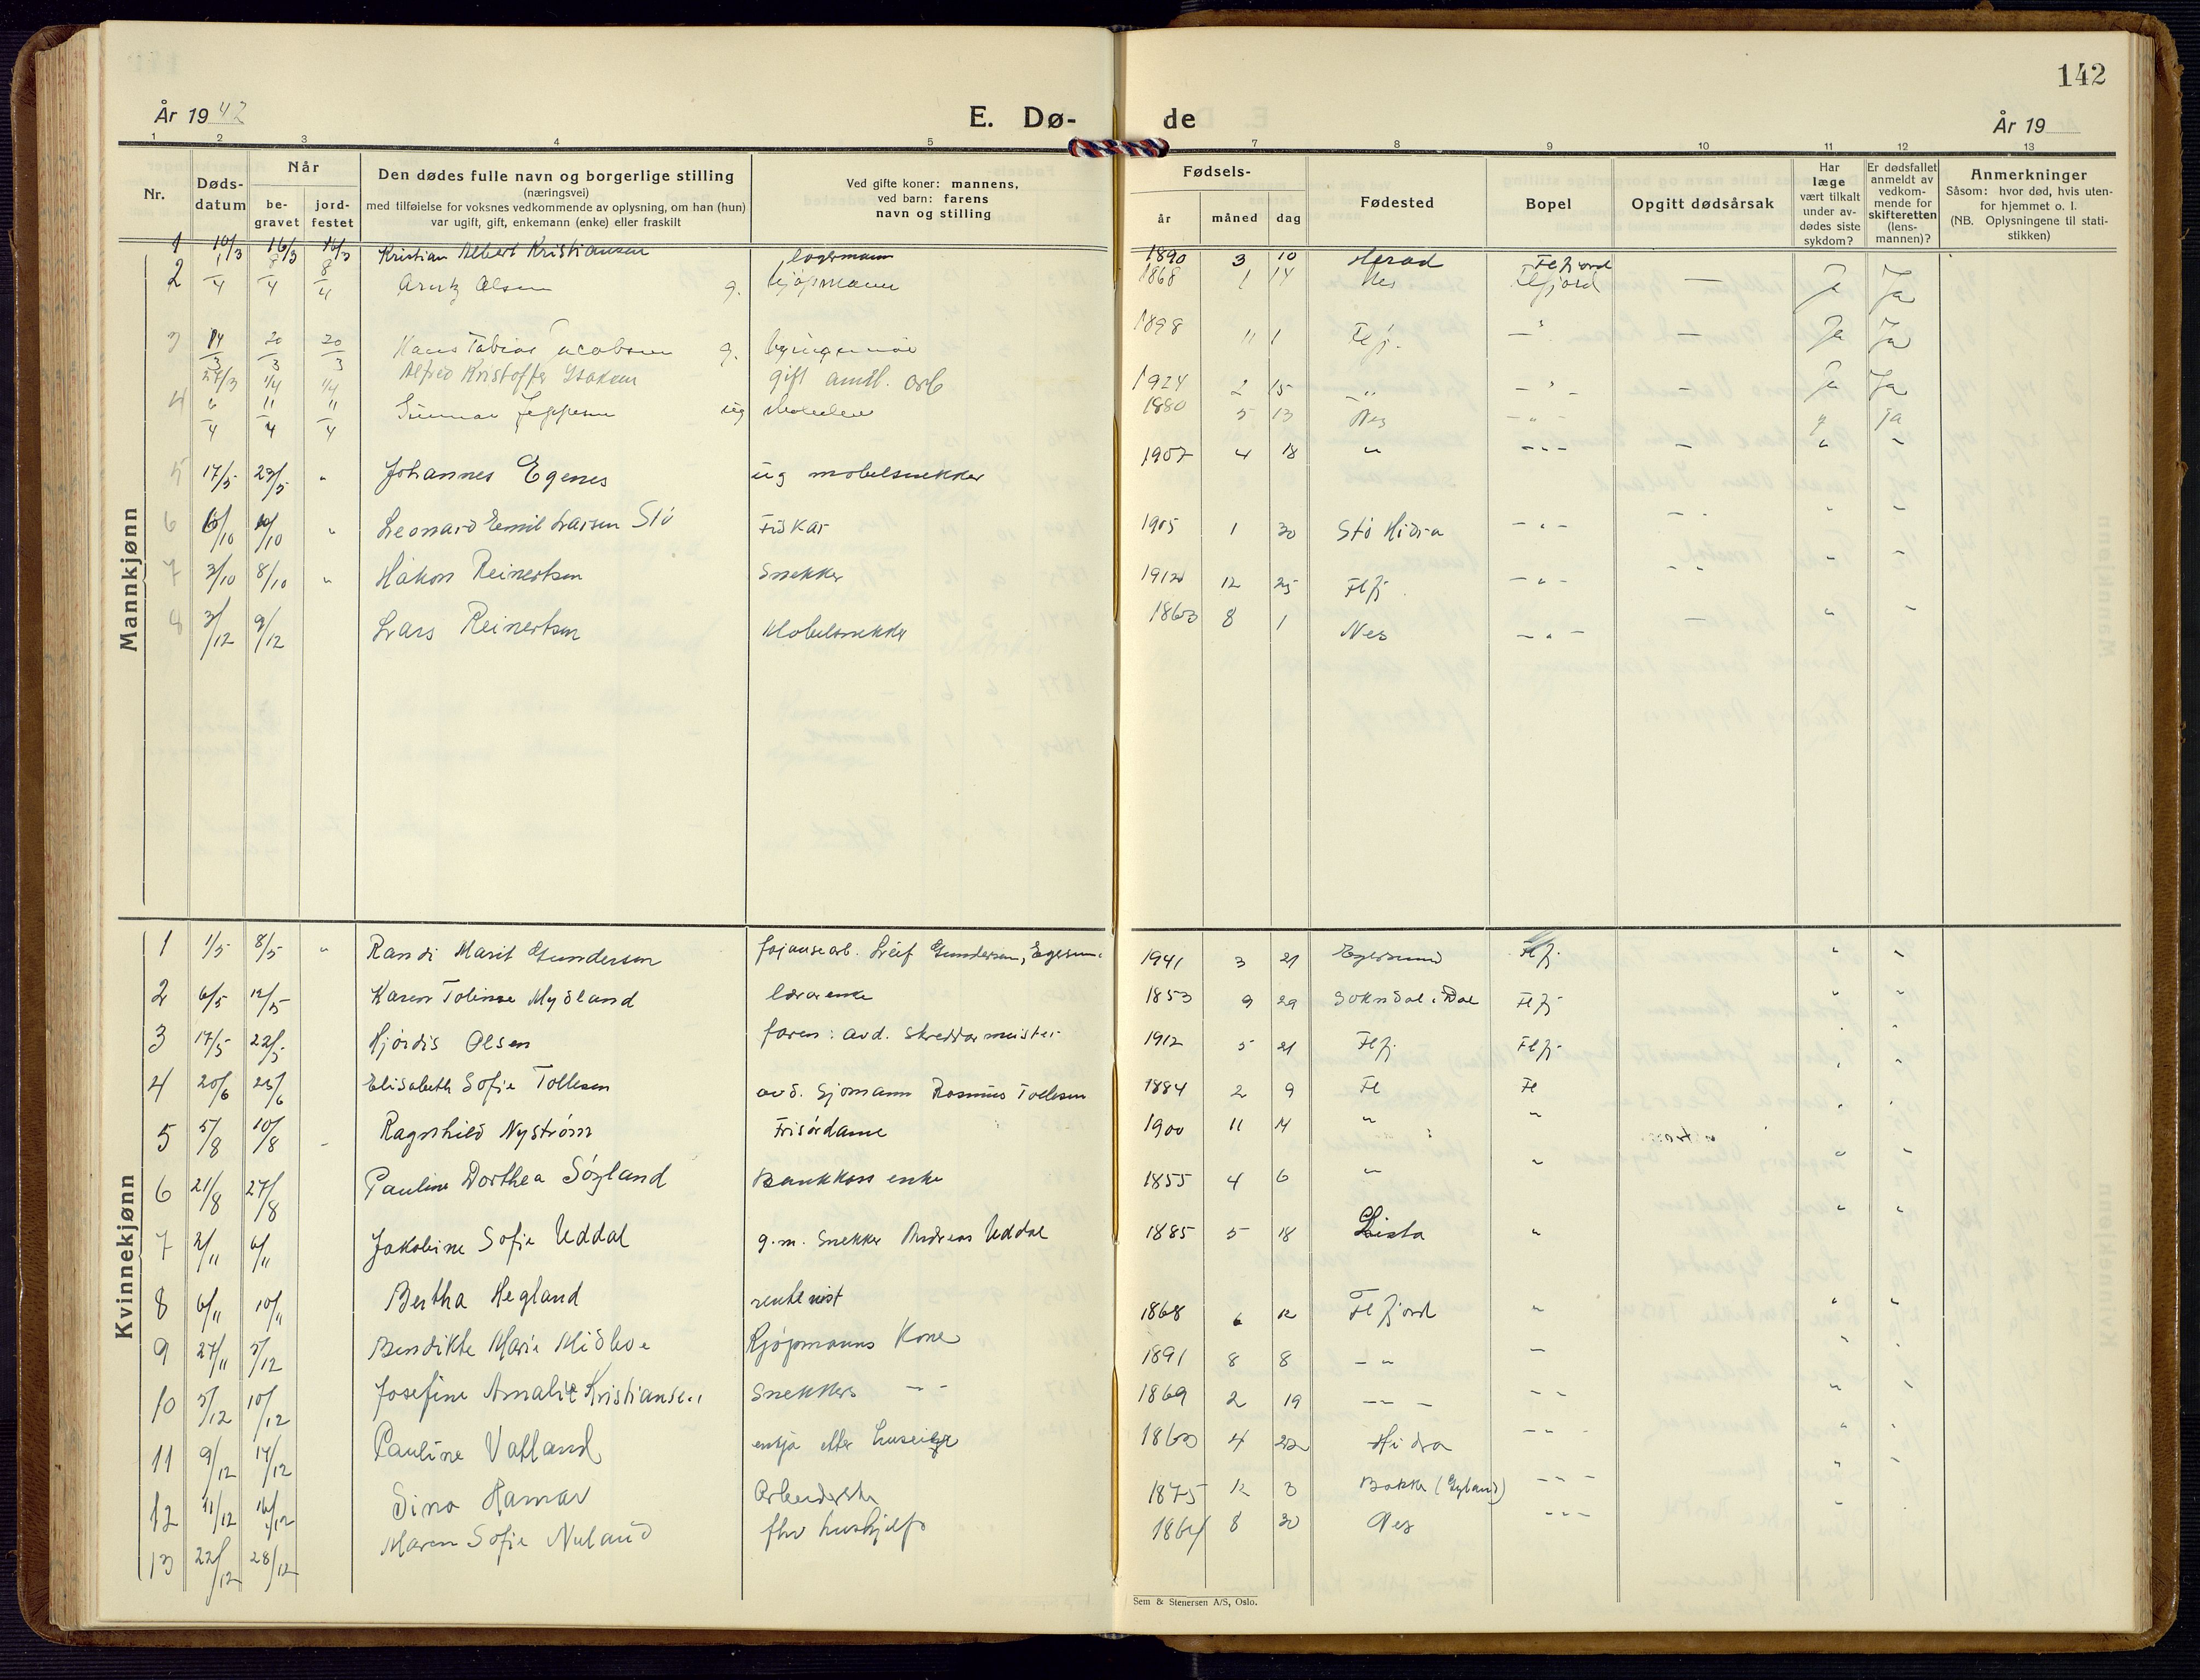 142
År 1942 E. Dø- de År 19
1 2 3 4 5 7 8 9 10 11 12 13
Nr. Døds-datum Når be-gravet jord-festet Den dødes fulle navn og borgerlige stilling (næringsvei) med tilføielse for voksnes vedkommende av oplysning, om han (hun) var ugift, gift, enkemann (enke) eller fraskilt Ved gifte koner: mannens, ved barn: farens navn og stilling Fødsels- år måned dag Fødested Bopel Opgitt dødsårsak Har læge vært tilkalt under av-dødes siste sykdom? Er dødsfallet anmeldt av vedkom-mende for skifteretten (lens-mannen)? Anmerkninger Såsom: hvor død, hvis uten-for hjemmet o. l. (NB. Oplysningene til stati-stikken)
Mannkjønn
1 10/3 16/3 16/3 Kristian Albert Kristiansen 1890 3 10 Herad Flfjord
2 8/4 8/4 Arntz Olsen g. kjøpmann 1868 1 14 Nes Flfjord — Ja Ja
3 14/3 20/3 20/3 Hans Tobias Jacobsen g. 1898 11 1 Flfj. — " — Ja Ja
27/3 1/4 1/4 Alfred Kristoffer Isaksen gift arb 1924 2 15 — " — " - Ja Ja
4 6/4 11/4 11/4 Gunnar Jeppesen ug 1880 5 13 Nes - " - Ja
5 17/5 23/5 " Johannes Egenes ug møbelsnekker 1907 4 18 " - " - — " "
6 6/10 10/10 " Leonard Emil Larsen Stö Fiskar 1905 1 30 Stö Hidra - " - - - " "
7 3/10 8/10 " Håkon Reinertsen Snekker 1912 12 25 Flfj. - " - " "
8 3/12 9/12 Lars Reinertsen Møbelsnekker 1863 8 1 Nes - " - — " "
Kvinnekjønn
1 1/5 8/5 " Randi Marit Gundersen fajansearb. Leif Gundersen, Egersun. 1941 3 21 Egersund Flfj. " "
2 6/5 12/5 Karen Toline Mydland lærarenke 1853 9 29 Sokndal i Dal Flfj " "
3 17/5 22/5 Hjørdis Olsen faren: avd. skreddarmeister 1912 5 21 Flfj. Flfj. " "
4 20/6 25/6 Elisabeth Sofie Tollesen avd. Sjömann Rasmus Tollesen 1884 2 9 Fl Fl " "
5 5/8 10/8 Ragnhild Nyström Frisördame 1900 11 14 " " " "
6 21/8 27/8 Pauline Dorthea Söyland Bankkass enke 1855 4 6 " " " "
7 2/11 6/11 Jakobine Sofie Uddal g.m. Snekker Andreas Uddal 1885 5 18 Lista " " "
8 6/11 10/11 Bertha Hegland rentenist 1868 6 12 Flfjord " " "
9 27/11 3/12 Bendikte Marie Midbøe Kjøpmanns Kone 1891 8 8 - " " " "
10 5/12 10/12 Josefine Amalie Kristiansen Snekkers - - 1869 2 19 -- - - - " "
11 9/12 14/12 Pauline Vatland enkja etter huseigar 1863 4 22 Hidra - - - " "
12 11/12 16/12 Sina Hamar Arbeiderske 1875 12 3 Bakke (Gyland) - - - "
13 22/12 28/12 Maren Sofie Nuland fhv hushjelp 1864 8 30 Nes - - - "
Sem & Stenersen A/S, Oslo.